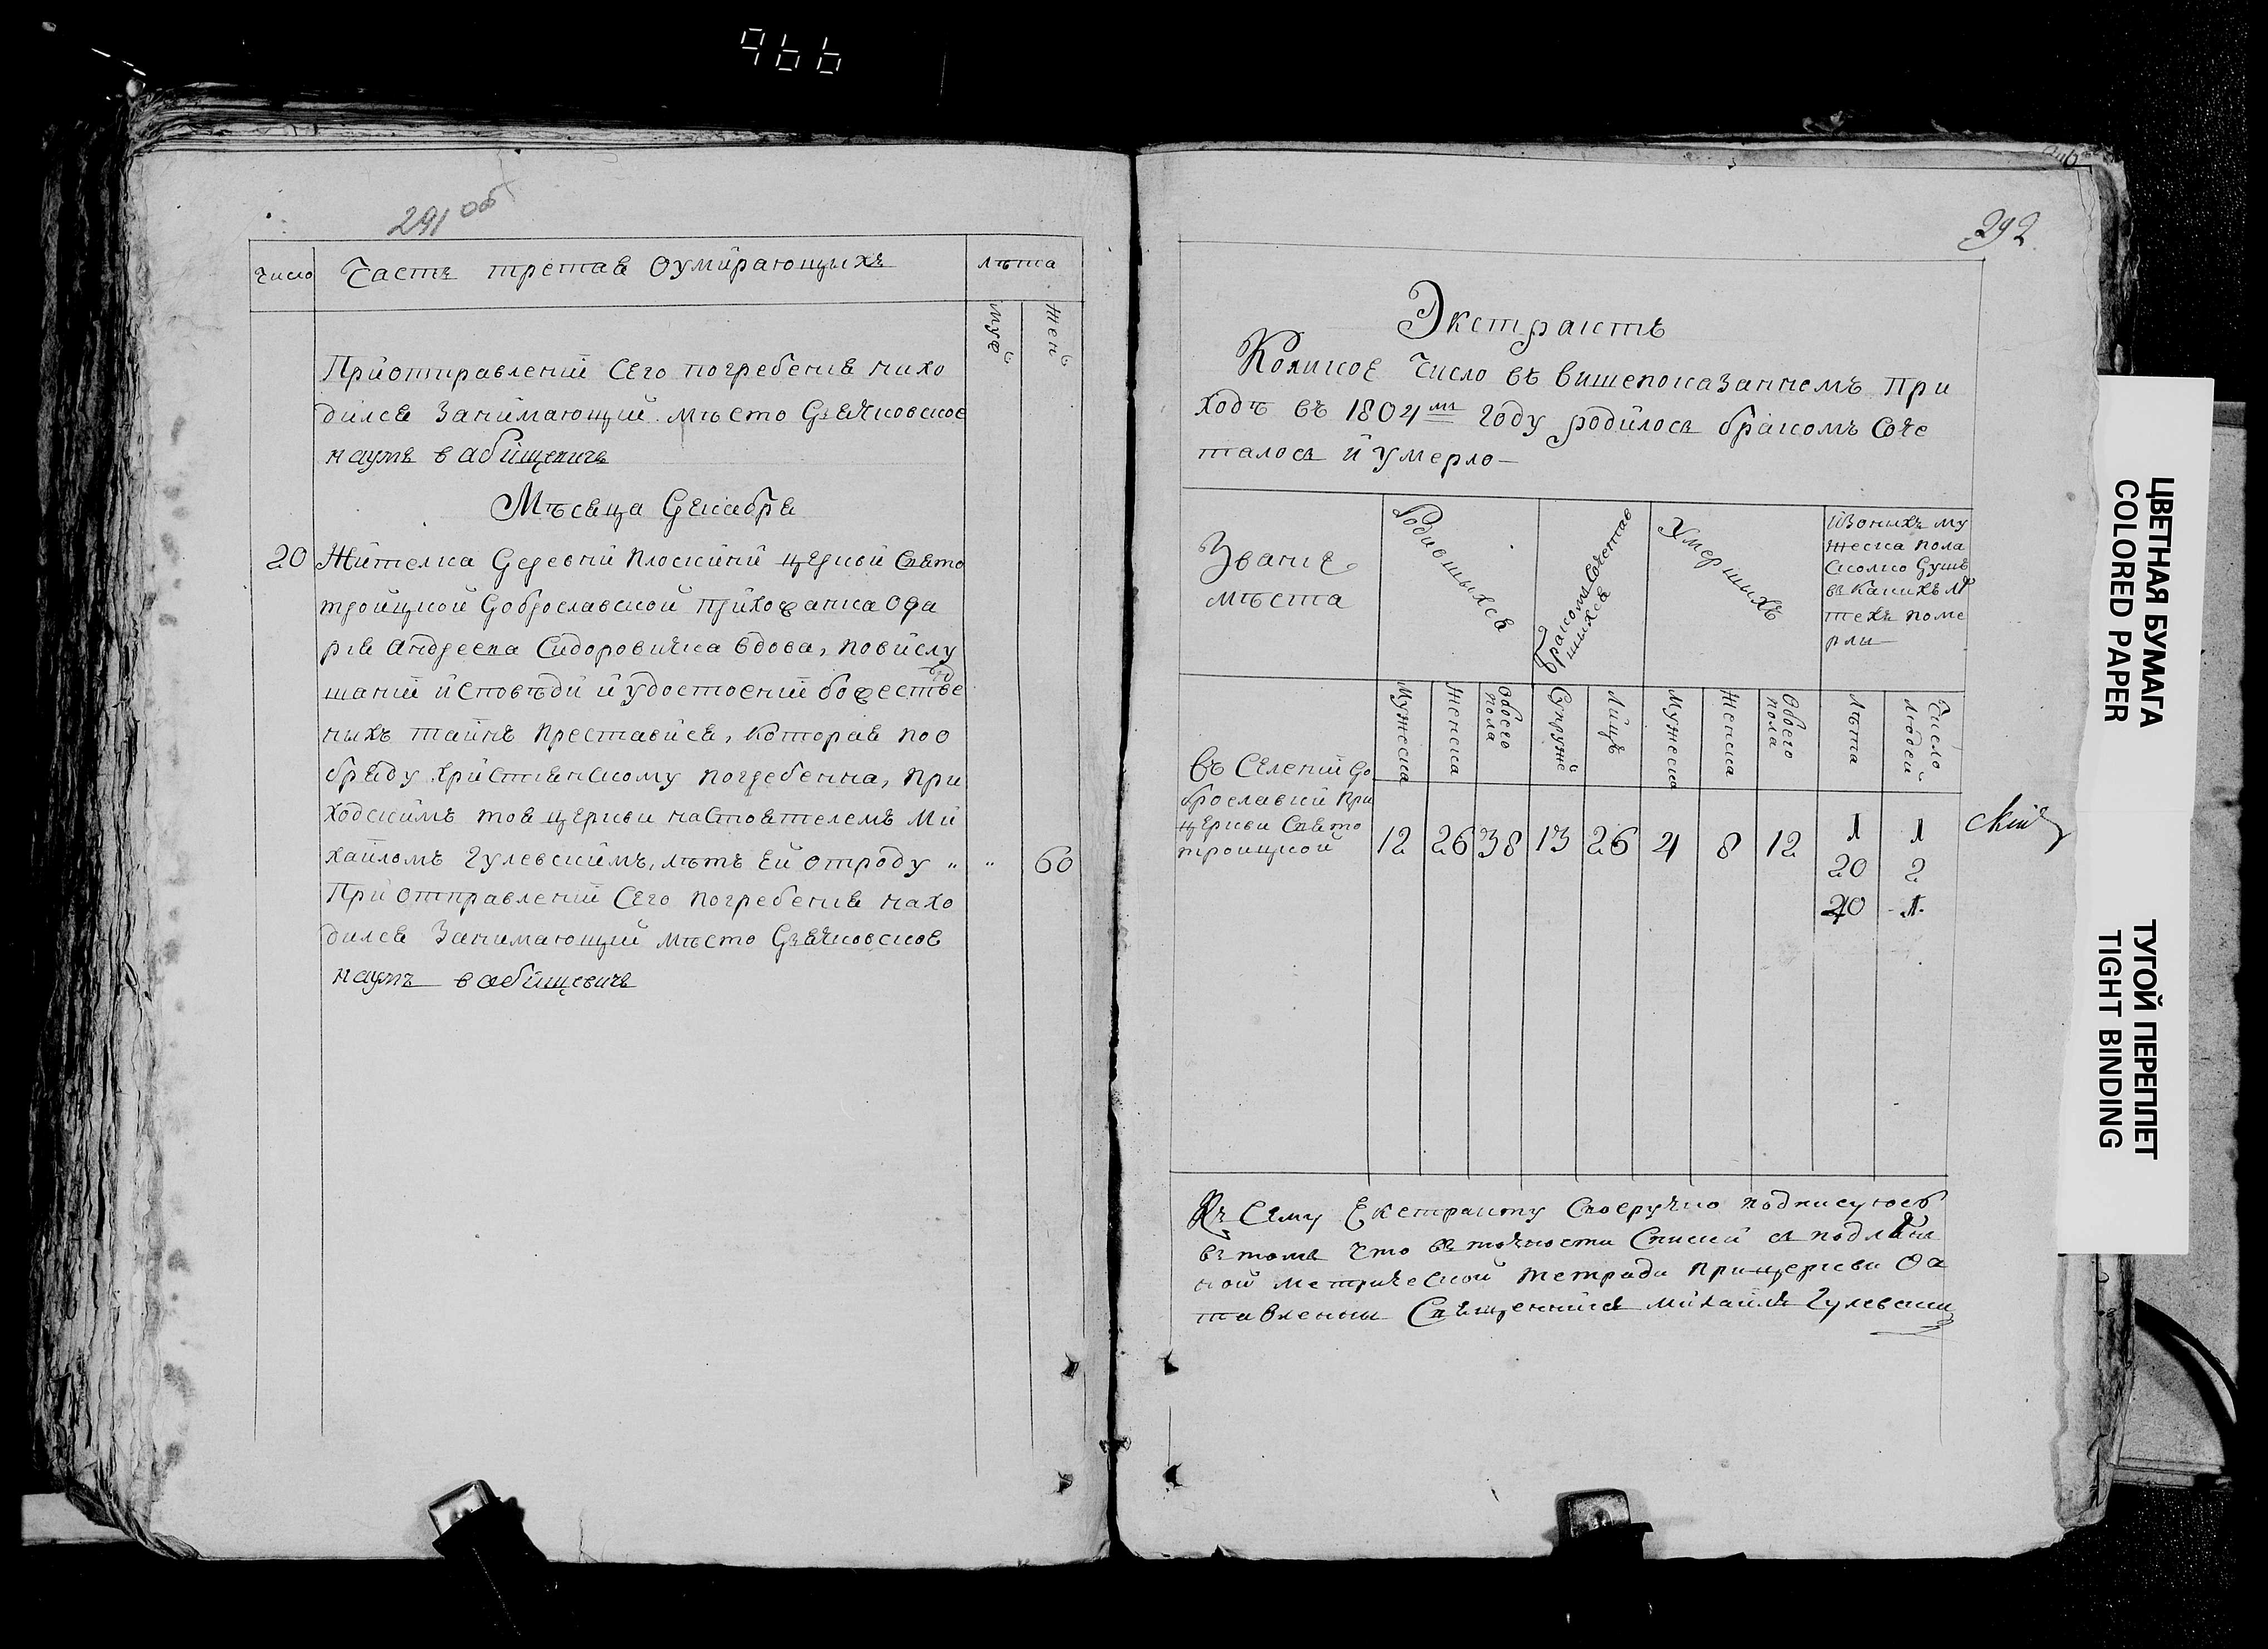 966
291 об
Число Часть третая Оумирающыхъ лѣта
муж жен
При отправленіи Сего погребенія нахо
дился Занимающий мѣсто Дьячковское
наумъ вабищевичь
Мѣсяца Декабря
20 Жителка Деревни Плоскини церкви Свято
троицкой Доброславской прихожанка Ода
рія Андреева Сидоровичка вдова, по вислу
шаніи исповѣди и удостоеніи божестве
ныхъ таинъ преставися, которая по о
бряду християнскому погребенна, при
ходскимъ тоя церкви настоятелемъ Ми
хаиломъ Гулевскимъ, лѣтъ ей отроду " " 60
При отправленіи Сего погребенія нахо
дился Занимающий мѣсто Дьячковское
наумъ вабищевичь
292
Экстрактъ
Коликое Число въ вишепоказанномъ При
ходѣ въ 1804м Году родилось бракомъ Соче
талось и умерло
Званіе мѣста
Родившыхся
Бракомъ Сочетав
шыхся
Умершыхъ
Изонихъ му
жеска пола
Сколко Душъ
въ Какихъ лѣ
техъ поме
рли
Мужеска Женска Обоего пола Супруже Лицъ Мужеска Женска Обоего пола Лѣта Число людей
Въ Селеніи До
брославки При
церкви Свято
троицкой 12 26 38 13 26 4 8 12 1 1
20 2
40 1
скій
Къ Сему Екстракту Своеручно подписуюсь
въ томъ что въ точности Списки съ подлин
ной метрической тетради при церкви Ос
тавленны Священникъ михаилъ Гулевски
ЦВЕТНАЯ БУМАГА
COLORED PAPER
ТУГОЙ ПЕРЕПЛЕТ
TIGHT BINDING